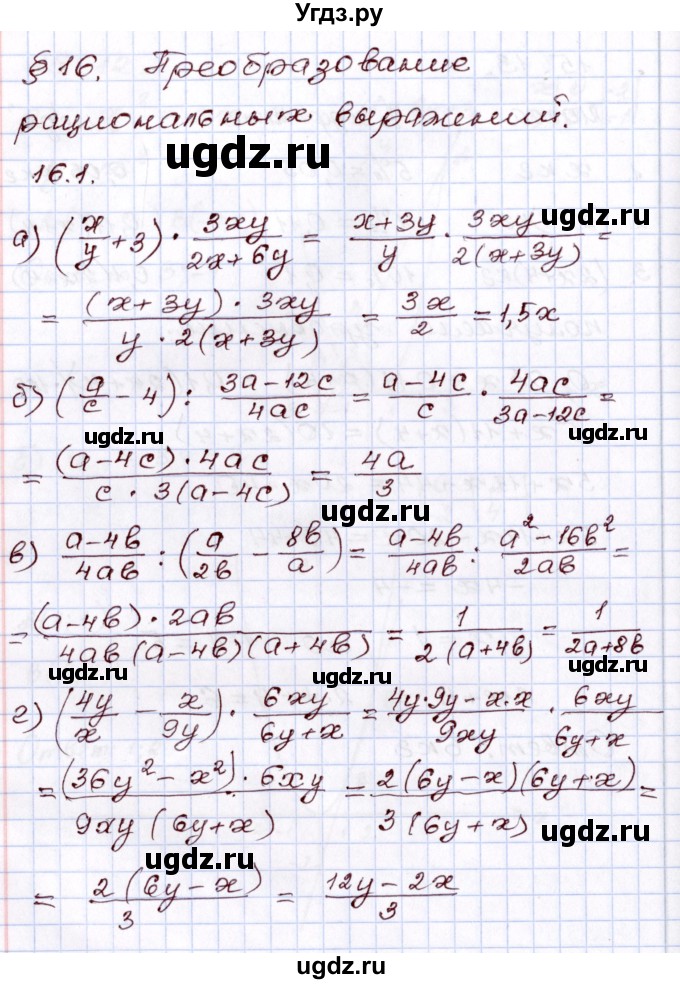 Угдз.ру
§ 16. Преобразование
рациональных выражений.
ugdz.ru
16.1.
ugdz.ru
а) (x/y + 3) · 3xy/(2x+6y) = (x+3y)/y · 3xy/(2(x+3y)) =
= ((x+3y) · 3xy)/(y · 2(x+3y)) = 3x/2 = 1,5x
б) (a/c − 4) : (3a−12c)/(4ac) = (a−4c)/c · 4ac/(3a−12c) =
ugdz.ru
ugdz.ru
= ((a−4c) · 4ac)/(c · 3(a−4c)) = 4a/3
ugdz.ru
в) (a−4b)/(4ab) : (a/(2b) − 8b/a) = (a−4b)/(4ab) : (a²−16b²)/(2ab) =
= ((a−4b) · 2ab)/(4ab(a−4b)(a+4b)) = 1/(2(a+4b)) = 1/(2a+8b)
ugdz.ru
ugdz.ru
г) (4y/x − x/(9y)) · 6xy/(6y+x) = (4y·9y−x·x)/(9xy) · 6xy/(6y+x)
= ((36y²−x²) · 6xy)/(9xy(6y+x)) = (2(6y−x)(6y+x))/(3(6y+x)) =
ugdz.ru
ugdz.ru
= (2(6y−x))/3 = (12y−2x)/3
ugdz.ru
ugdz.ru